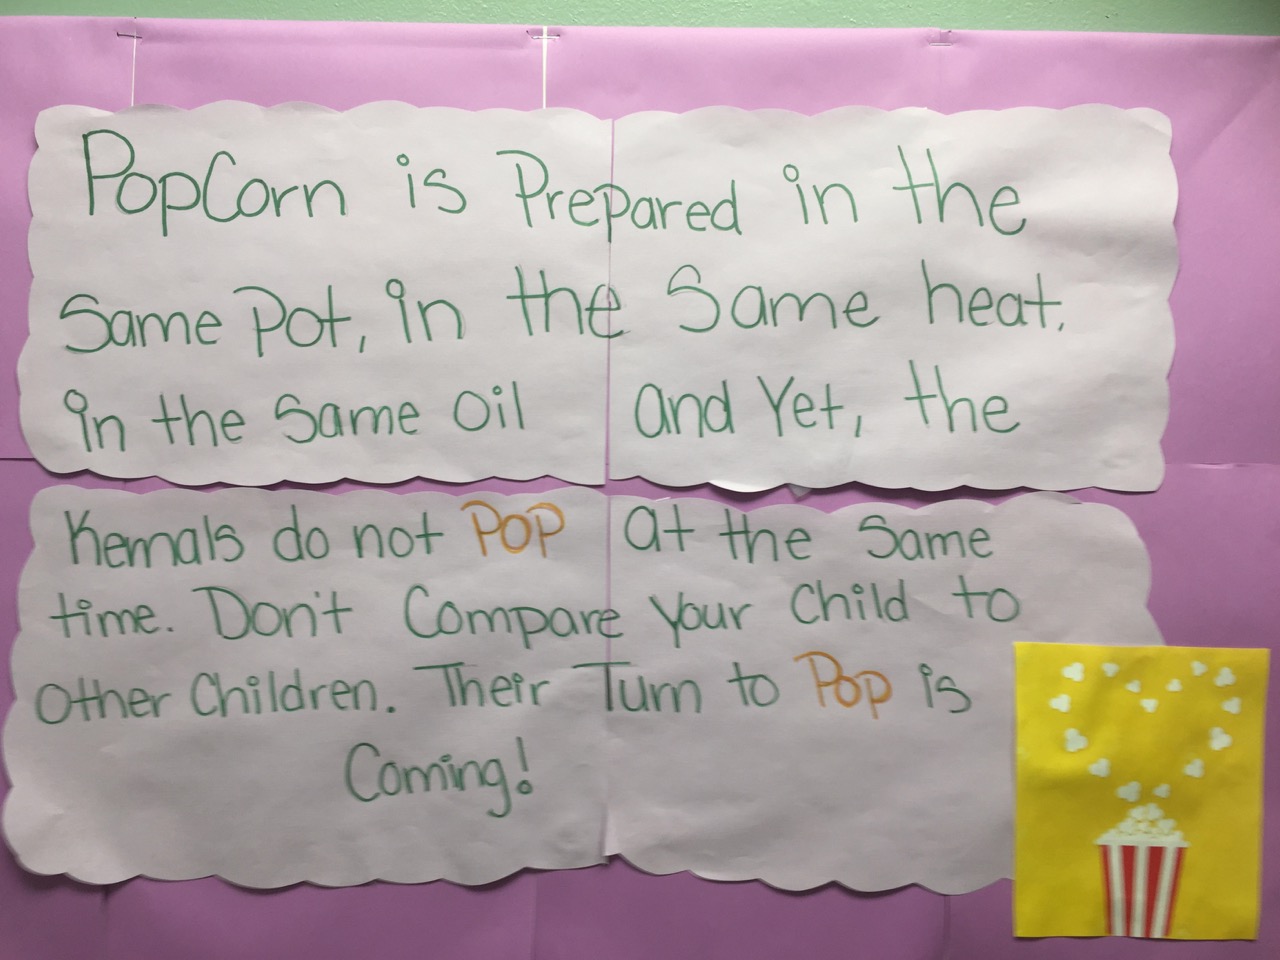 PopCorn is Prepared in the
Same Pot, in the Same heat,
in the Same Oil and Yet, the
Kernals do not Pop at the Same
time. Don't Compare your Child to
Other Children. Their Turn to Pop is
Coming!